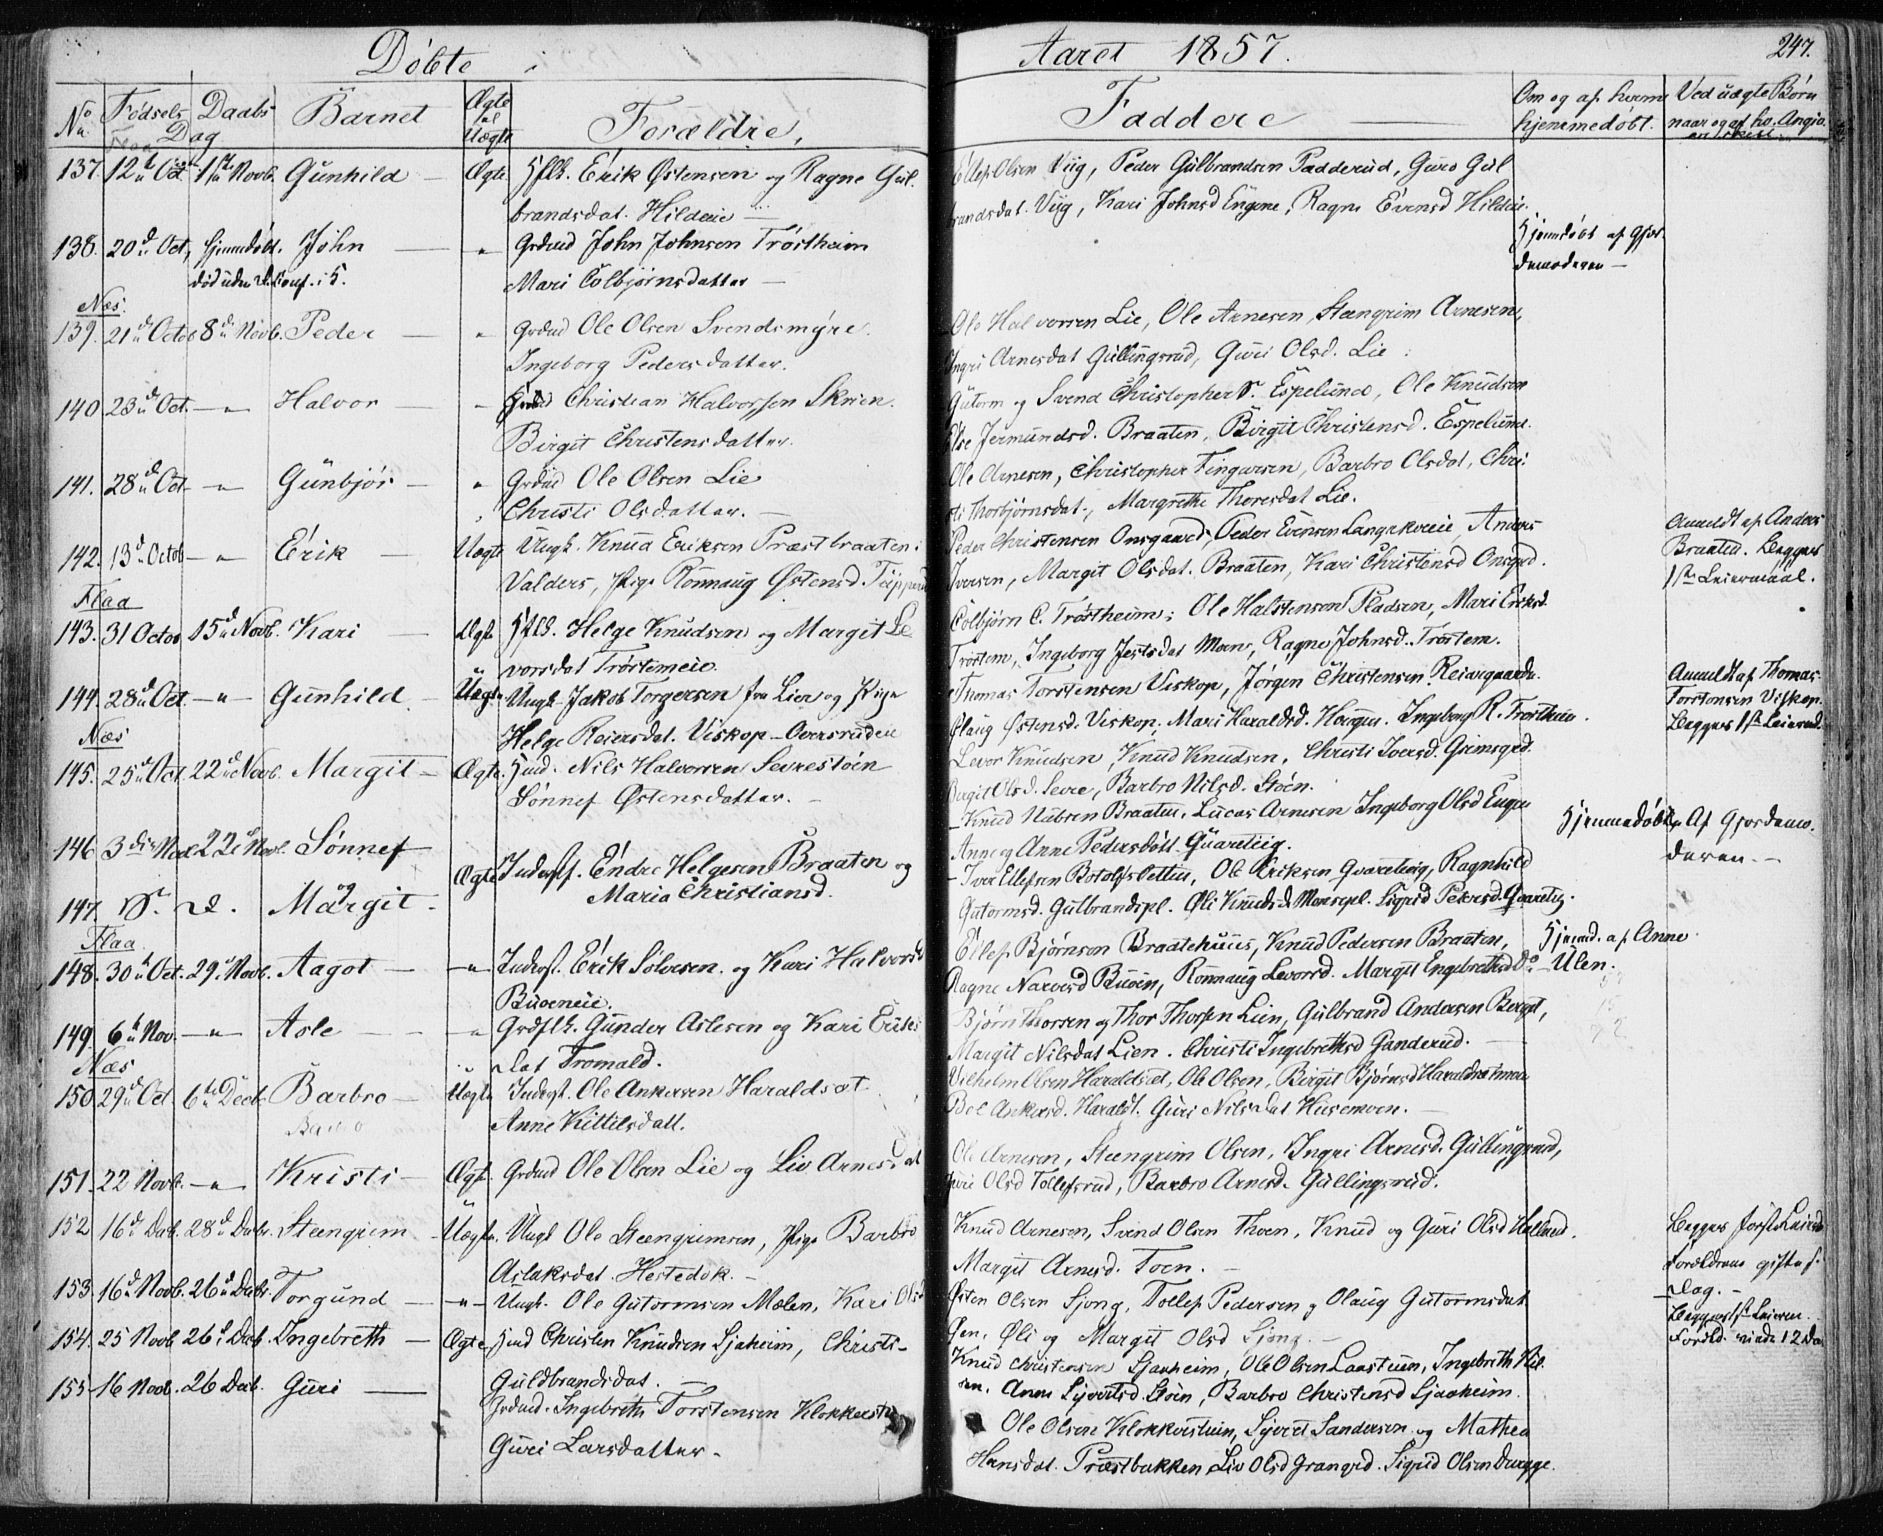 Döbte i Aaret 1857. 247.
No Fødsels Daabs Dag Barnet Ægte el Uægte Forældre, Faddere Om og af hvem hjemmedøbt. Ved uægte Börn naar og af hv. Angiv.
Flaa
137. 12 Oct 1ste Novb. Gunhild Ægte Erik Østensen og Ragne Gul-
brandsdat. Hilderie
Ellef Olsen Viig, Peder Gulbrandsen Padderud, Guro Gul
brandsdat. Viig, Kari Johnsd Engene, Ragne Evensd Hilderie.
138. 20d Oct, hjemdöbt. John " Grdmd John Johnsen Tröstheim
död uden Conf.
Mari Colbjörnsdatter
Hjemdöbt af Gjor-
demoderen
Næs.
139. 21d Octob 8d Novb. Peder " Grdmd Ole Olsen Svendsmyre.
Ingeborg Pedersdatter.
Ole Halvorsen Lie, Ole Arnesen, Steengrim Arnesen,
Ingri Arnesdat Gullingsrud, Guri Olsd. Lie
140 23d Oct. " Halvor " Christian Halvorsen Skrien.
Birgit Christensdatter.
Gutorm og Svend Christophers. Espelund, Ole Knudsen
Else Jermundsd. Braaten, Birgit Christensd. Espelund.
141. 28d Oct " Gunbjør " Grdmd Ole Olsen Lie
Christi Olsdatter.
Ole Arnesen, Christopher Fingarsen, Barbro Olsdat, Chri-
sti Thorbjørnsdat, Margrethe Thoresdat Lie.
142. 13d Octob " Erik Uægte Ungk. Knud Eriksen Præstbraaten i
Valders, Pige Rönnaug Østensd.
Peder Christensen Onsgaard, Peder Evensen Langekveie, Anders
Iversen, Margit Olsdat. Braaten, Kari Christensd Onsgrd.
Anmeldt af Anders
Braaten. Begges
1ste Leiermaal.
Flaa
143. 31 Octob 15d Novb. Kari Ægte Helge Knudsen og Margit Le
vorsdat Tröstemeie.
Colbjörn C. Tröstheim, Ole Halstensen Pladsen, Mari Eriksd.
Tröstem, Ingeborg Moen, Ragne Johnsd. Tröstem.
144. 28d Oct. " Gunhild Uægte Ungk. Jakob Torgersen fra Lier og Pige
Helge Reiersdat. Viskop-Oversrudeie
Thomas Torstensen Viskop, Jörgen Christensen Reiargaarden.
Østensd. Viskop, Mari Haraldsd. Ingeborg R. Tröstheim.
Anmeldt af Thomas
Torstensen Viskop.
Begges 1ste Leierm.
Næs
145. 25d Oct. 22d Novb. Margit Ægte Nils Halvorsen Sevrestøen
Sönnef Østensdatter.
Levor Knudsen, Knud Knudsen, Christi Iversd. Grimsgrd.
Birgit Olsd. Sevre, Barbro Nilsd. Støen.
146 Sönnef
og
147. Margit
Ægte Inderst. Endre Helgesen Braaten og
Maria Christiansd.
Knud Braaten, Lucas Arnesen Ingeborg Olsd Engen
Anne og Anne Pedersdött. Quarelüg.
Iver Ellefsen Ole Eriksen Ragnhild
Gutormsd. Gulbrandspl. Sigrid Petersd. Quarelüg.
Hjemmedöbt Af Gjordemo.
deren.
Flaa
148. 30 Oct. 29 Novb. Aagot " Inderst. Erik Solvesen og Kari Halvorsd
Buoeneie.
Ellef Björnson Braatehuus, Knud Pedersen Braaten,
Ragne Narvesd Buoen, Rönnaug Levorsd. Margit Engebrethsd Do
Hjemd. af Anne
Ulen.
149. 6 Nov. " Asle " Gunder Aslesen og Kari Eriks
dat Tromald.
Björn Thorsen og Thor Thorsen Lien, Gulbrand Andersen Berget,
Margit Nilsdat Lien. Christi Ingebrethsd Ganderud.
Næs
150 29d Oct. 6te Decb. Barbro Uægte Inderst. Ole Ankersen Haraldset
Anne Kittilsdatt.
Vilhelm Olsen Haraldset, Ole Olsen, Birgit Björnsd
Ankersd. Haraldt. Guri Nilsdat Husemoen.
151. 22 Novb. " Kristi Ægte. Grdmd Ole Olsen Lie og Liv Arnesdat
Ole Arnesen, Steengrim Olsen, Ingri Arnesd. Gullingsrud,
Guri Olsd Tollefsrud, Barbro Arnesd. Gullingsrud.
152 16d 28d Decbr. Steengrim Uægte. Ungk Ole Steengrimsen, Pige Barbro
Aslaksdat. Hestedok.
Knud Arnesen, Svend Olsen Thoen, Knud og Guri Olsd
Margit Arnesd. Toen.
Begges første Leierm.
Forældrene gifte s.
Dag.
153. 16d Novb. 26d Decbr. Torgund " Ungk. Ole Gutormsen Mælen, Kari Olsd
Østen Olsen Sjong, Tollef Pedersen og Olaug Gutormsdat
Øen, Oli og Margit Olsd Sjong.
Begges 1ste Leierm.
154. 25 Novb 26d Decb. Ingebreth Ægte Christen Knudsen Sjaheim, Christi
Guldbrandsdat.
Knud Christensen Sjaaheim, Ole Olsen Laastuen, Ingebreth Nil-
sen. Anne Sjovertsd Støen, Barbro Christensd Sjaaheim.
155 16 Novb. 26 Decb. Guri Grdmd. Ingebreth Torstensen
Guri Larsdatter.
Ole Olsen Klokkerstuen, Syvert Sandersen og Mathea
Hansdat. Præstbakken, Liv Olsd Grangrd. Sigrid Olsen